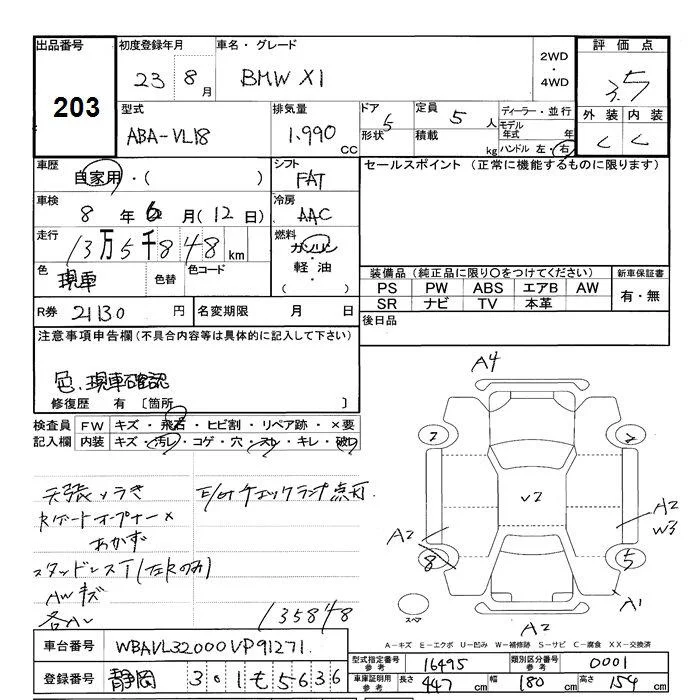 出品番号 初度登録年月 車名・グレード 評価点
203 23 8月 BMW X1 2WD・4WD 3.5
型式 排気量 ドア形状 定員 積載 ディーラー・並行 外装 内装
ABA-VL18 1.990 CC 5 5人 kg モデル年式 年 C C
ハンドル 左・右
車歴 シフト セールスポイント (正常に機能するものに限ります)
自家用・( ) FAT
車検 冷房
8年 6月 (12日) AAC
走行 燃料
13万5千848km ガソリン・軽油・( )
色 色替 色コード 装備品 (純正品に限り〇をつけてください) 新車保証書
現車 PS PW ABS エアB AW 有・無
SR ナビ TV 本革
R券 21130円 名変期限 月 日 後日品
注意事項申告欄 (不具合内容等は具体的に記入して下さい)
色、現車確認
修復歴 有 [箇所 ]
検査員記入欄 FW キズ・飛石・ヒビ割・リペア跡・×要
内装 キズ・汚レ・コゲ・穴・スレ・キレ・破レ
天張りうき E/gチェックランプ点灯
Rゲートオープナー×
あかず
スタッドレスT(左右のみ)
AWキズ
135848
A4
7 7
V2
A2 W3
A2
8 5
A1
スペア
A2
A－キズ E－エクボ U－凹み W－補修跡 S－サビ C－腐食 XX－交換済
車台番号 WBAVL32000VP91271
型式指定番号 参考 16495 類別区分番号 参考 0001
登録番号 静岡 301 も 5636
車庫証明用 参考 長さ 447cm 幅 180cm 高さ 154cm